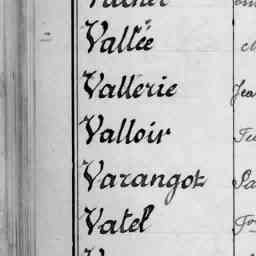 Vallée
Vallerie
Valloir
Varangot
Vatel